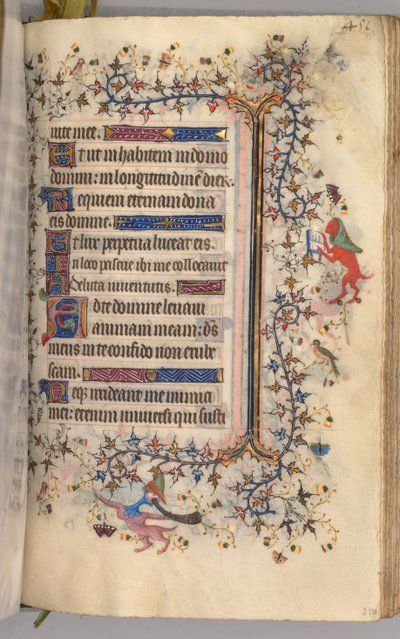 uite mee.
Et ut inhabitem in domo
domini: in longitudinē dierū.
Requiem eternam dona
eis domine.
Et lux perpetua luceat eis.
In loco pascue ibi me collocauit
Celicta iuuentutis.
Ad te domine leuaui
animam meam: ds̄
meus in te confido non erube
scam.
Neqꝫ irrideant me inimici
mei: etenim uniuersi qui susti
280